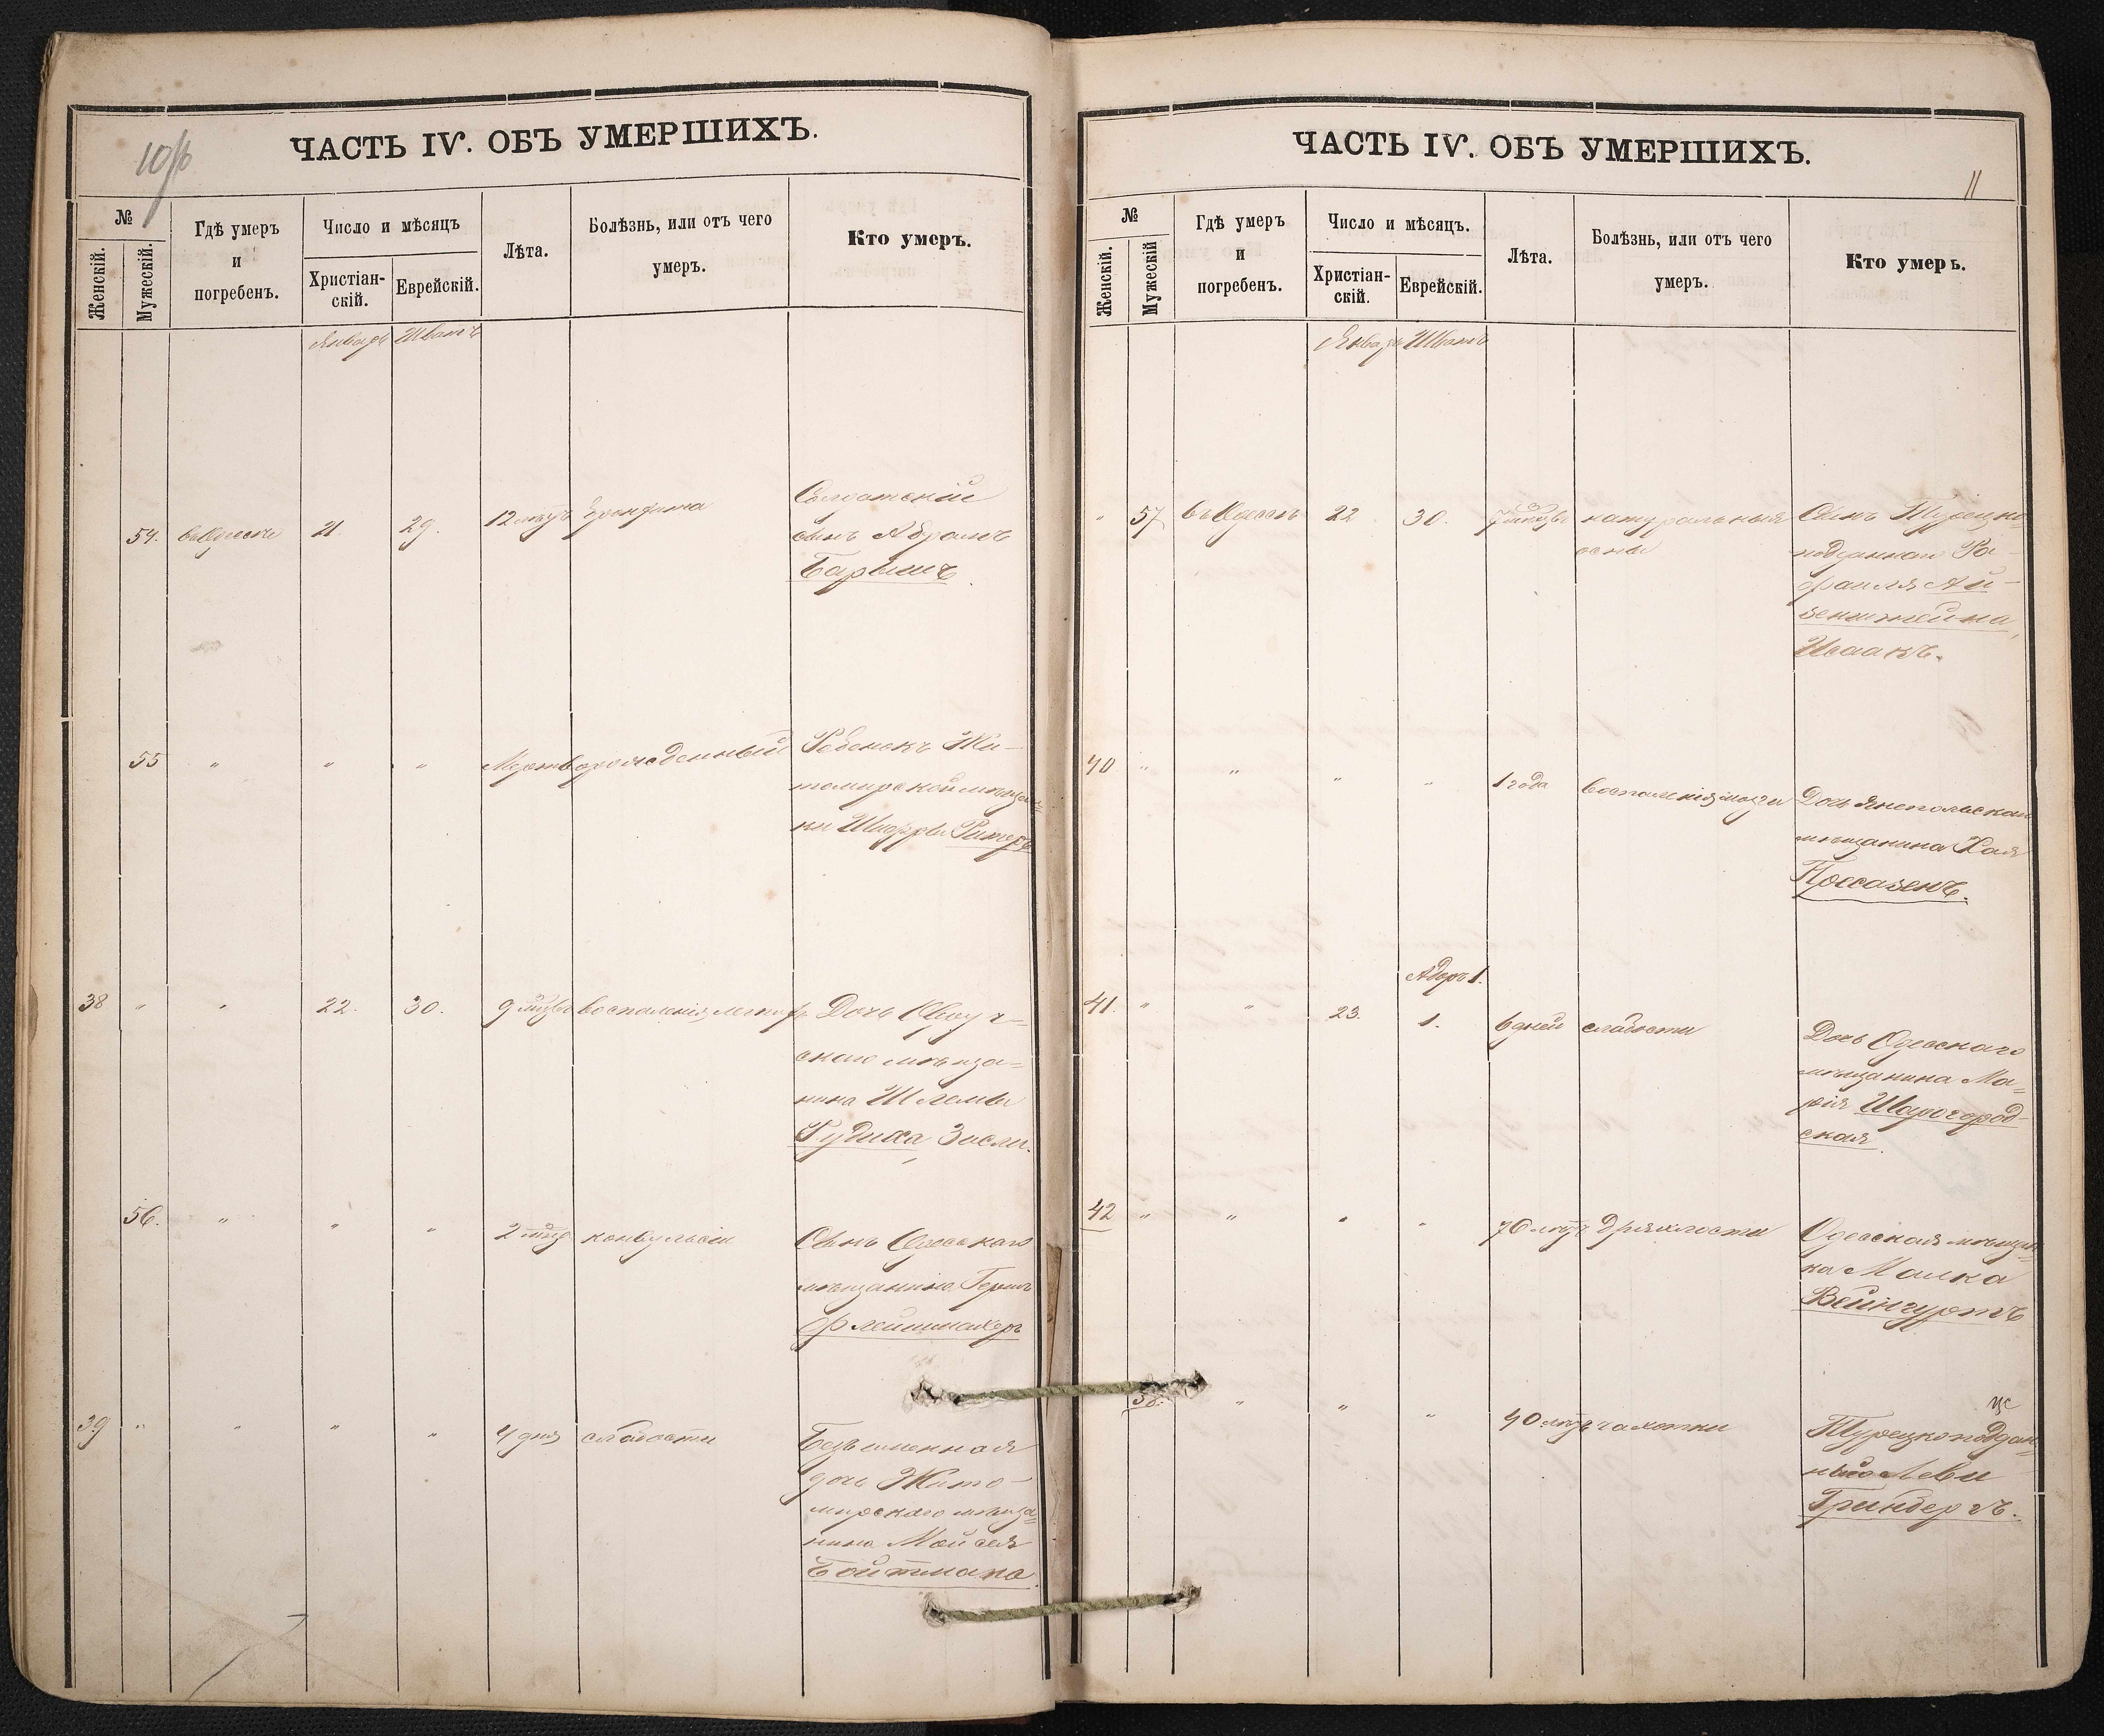 ЧАСТЬ IV. ОБЪ УМЕРШИХЪ.
№
Женскій.
Мужескій.
Гдѣ умеръ
и
погребенъ.
Число и мѣсяцъ
Христіан-
скій.
Еврейскій.
Лѣта.
Болѣзнь, или отъ чего
умеръ.
Кто умеръ.
Январь Шватъ
54. въ Одессѣ 21. 29. 12 лѣтъ
Солдатскій
сынъ Абрамъ
Барышъ.
55 " " " Мертворожденный Ребенокъ Жи-
томирской мѣщан-
ки
38 " " 22. 30. 9 мѣцъ воспаленія легкихъ Дочь Овруч-
скаго мѣща-
нина Шлемы
Гудиса, Зисля.
56. " " " 2 конвульсіи Сынъ Одесскаго
мѣщанина Герша
Флейшмахеръ
39 " " " " 4 дня слабости Безъименная
дочь Жито-
мирскаго мѣща-
нина Мойсея
Бойтмана.
ЧАСТЬ IV. ОБЪ УМЕРШИХЪ.
11
№
Женскій.
Мужескій
Гдѣ умеръ
и
погребенъ.
Число и мѣсяцъ.
Христіан-
скій.
Еврейскій.
Лѣта.
Болѣзнь, или отъ чего
умеръ.
Кто умеръ.
Январь Шватъ
" 57 въ Одессѣ 22 30. 7 мѣсяцъ натуральныя Сынъ Турецко-
оспы подданнаго Ра-
фаила Ай-
зенштейна,
Исаакъ.
40 " " " " 1 года воспаленія мозга Дочь Янопольскаго
мѣщанина Хая
Поссазенъ.
Адоръ 1.
41. " " 23. 1. 6 дней слабости Дочь Одесскаго
мѣщанина Ма-
рія Шаргород-
ская.
42 " " " " 76 лѣтъ дряхлости Одесская мѣщан-
ка Малка
Вейнгуртъ
58. " " " 40 лѣтъ чахотки Турецкоподдан-
ный Леви
Гринбергъ.